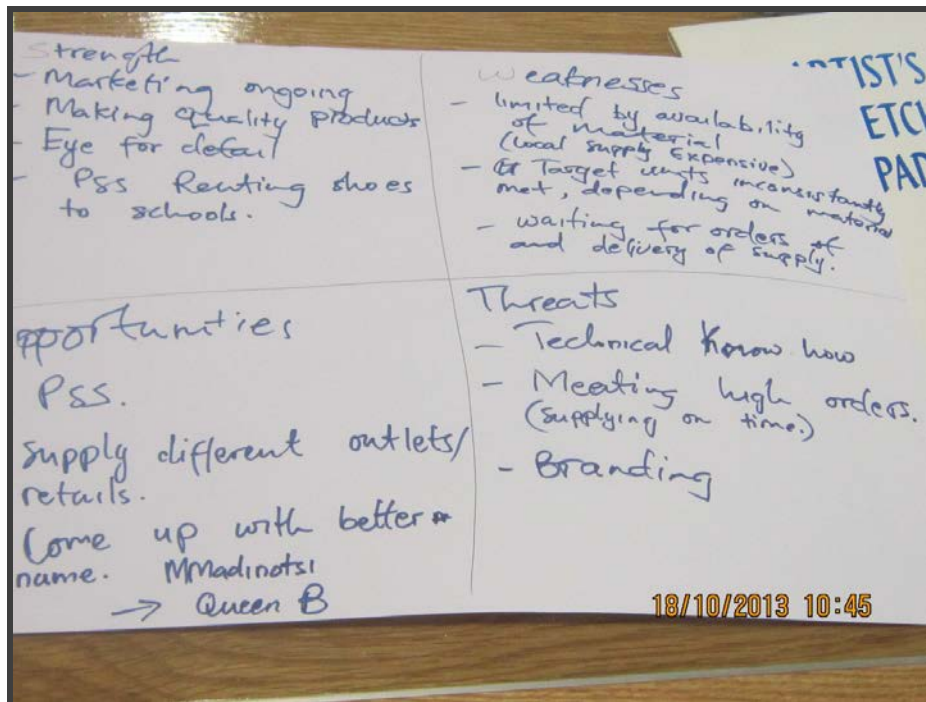 Strength
- Marketing ongoing
- Making quality products
- Eye for detail
- PSS Renting shoes
to schools.
Weaknesses
- limited by availability
of material
(local supply expensive)
- Target units inconsistantly
met, depending on material
- waiting for orders of
and delivery of supply.
pportunities
PSS.
supply different outlets/
retails.
Come up with better
name. MMadinotsi
→ Queen B
Threats
- Technical Know how
- Meating high orders.
(supplying on time.)
- Branding
TIST'S
ETCH
PAD
18/10/2013 10:45